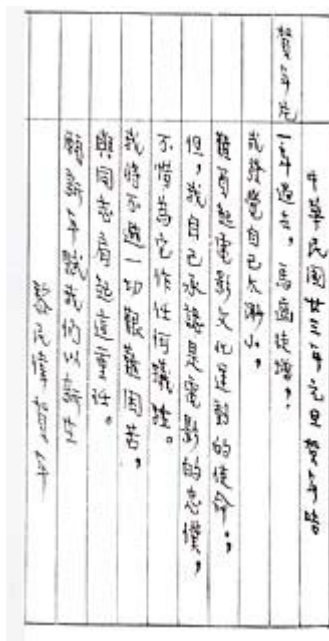 中華民國廿三年元旦賀年啓
賀年片
一年過去，馬齒徒增，
我發覺自己太渺小，
難肩起電影文化運動的使命；
但，我自己承認是電影的忠僕，
不惜為它作任何犧牲。
我將不避一切艱難困苦，
與同志肩起這重任。
願新年賜我們以新生